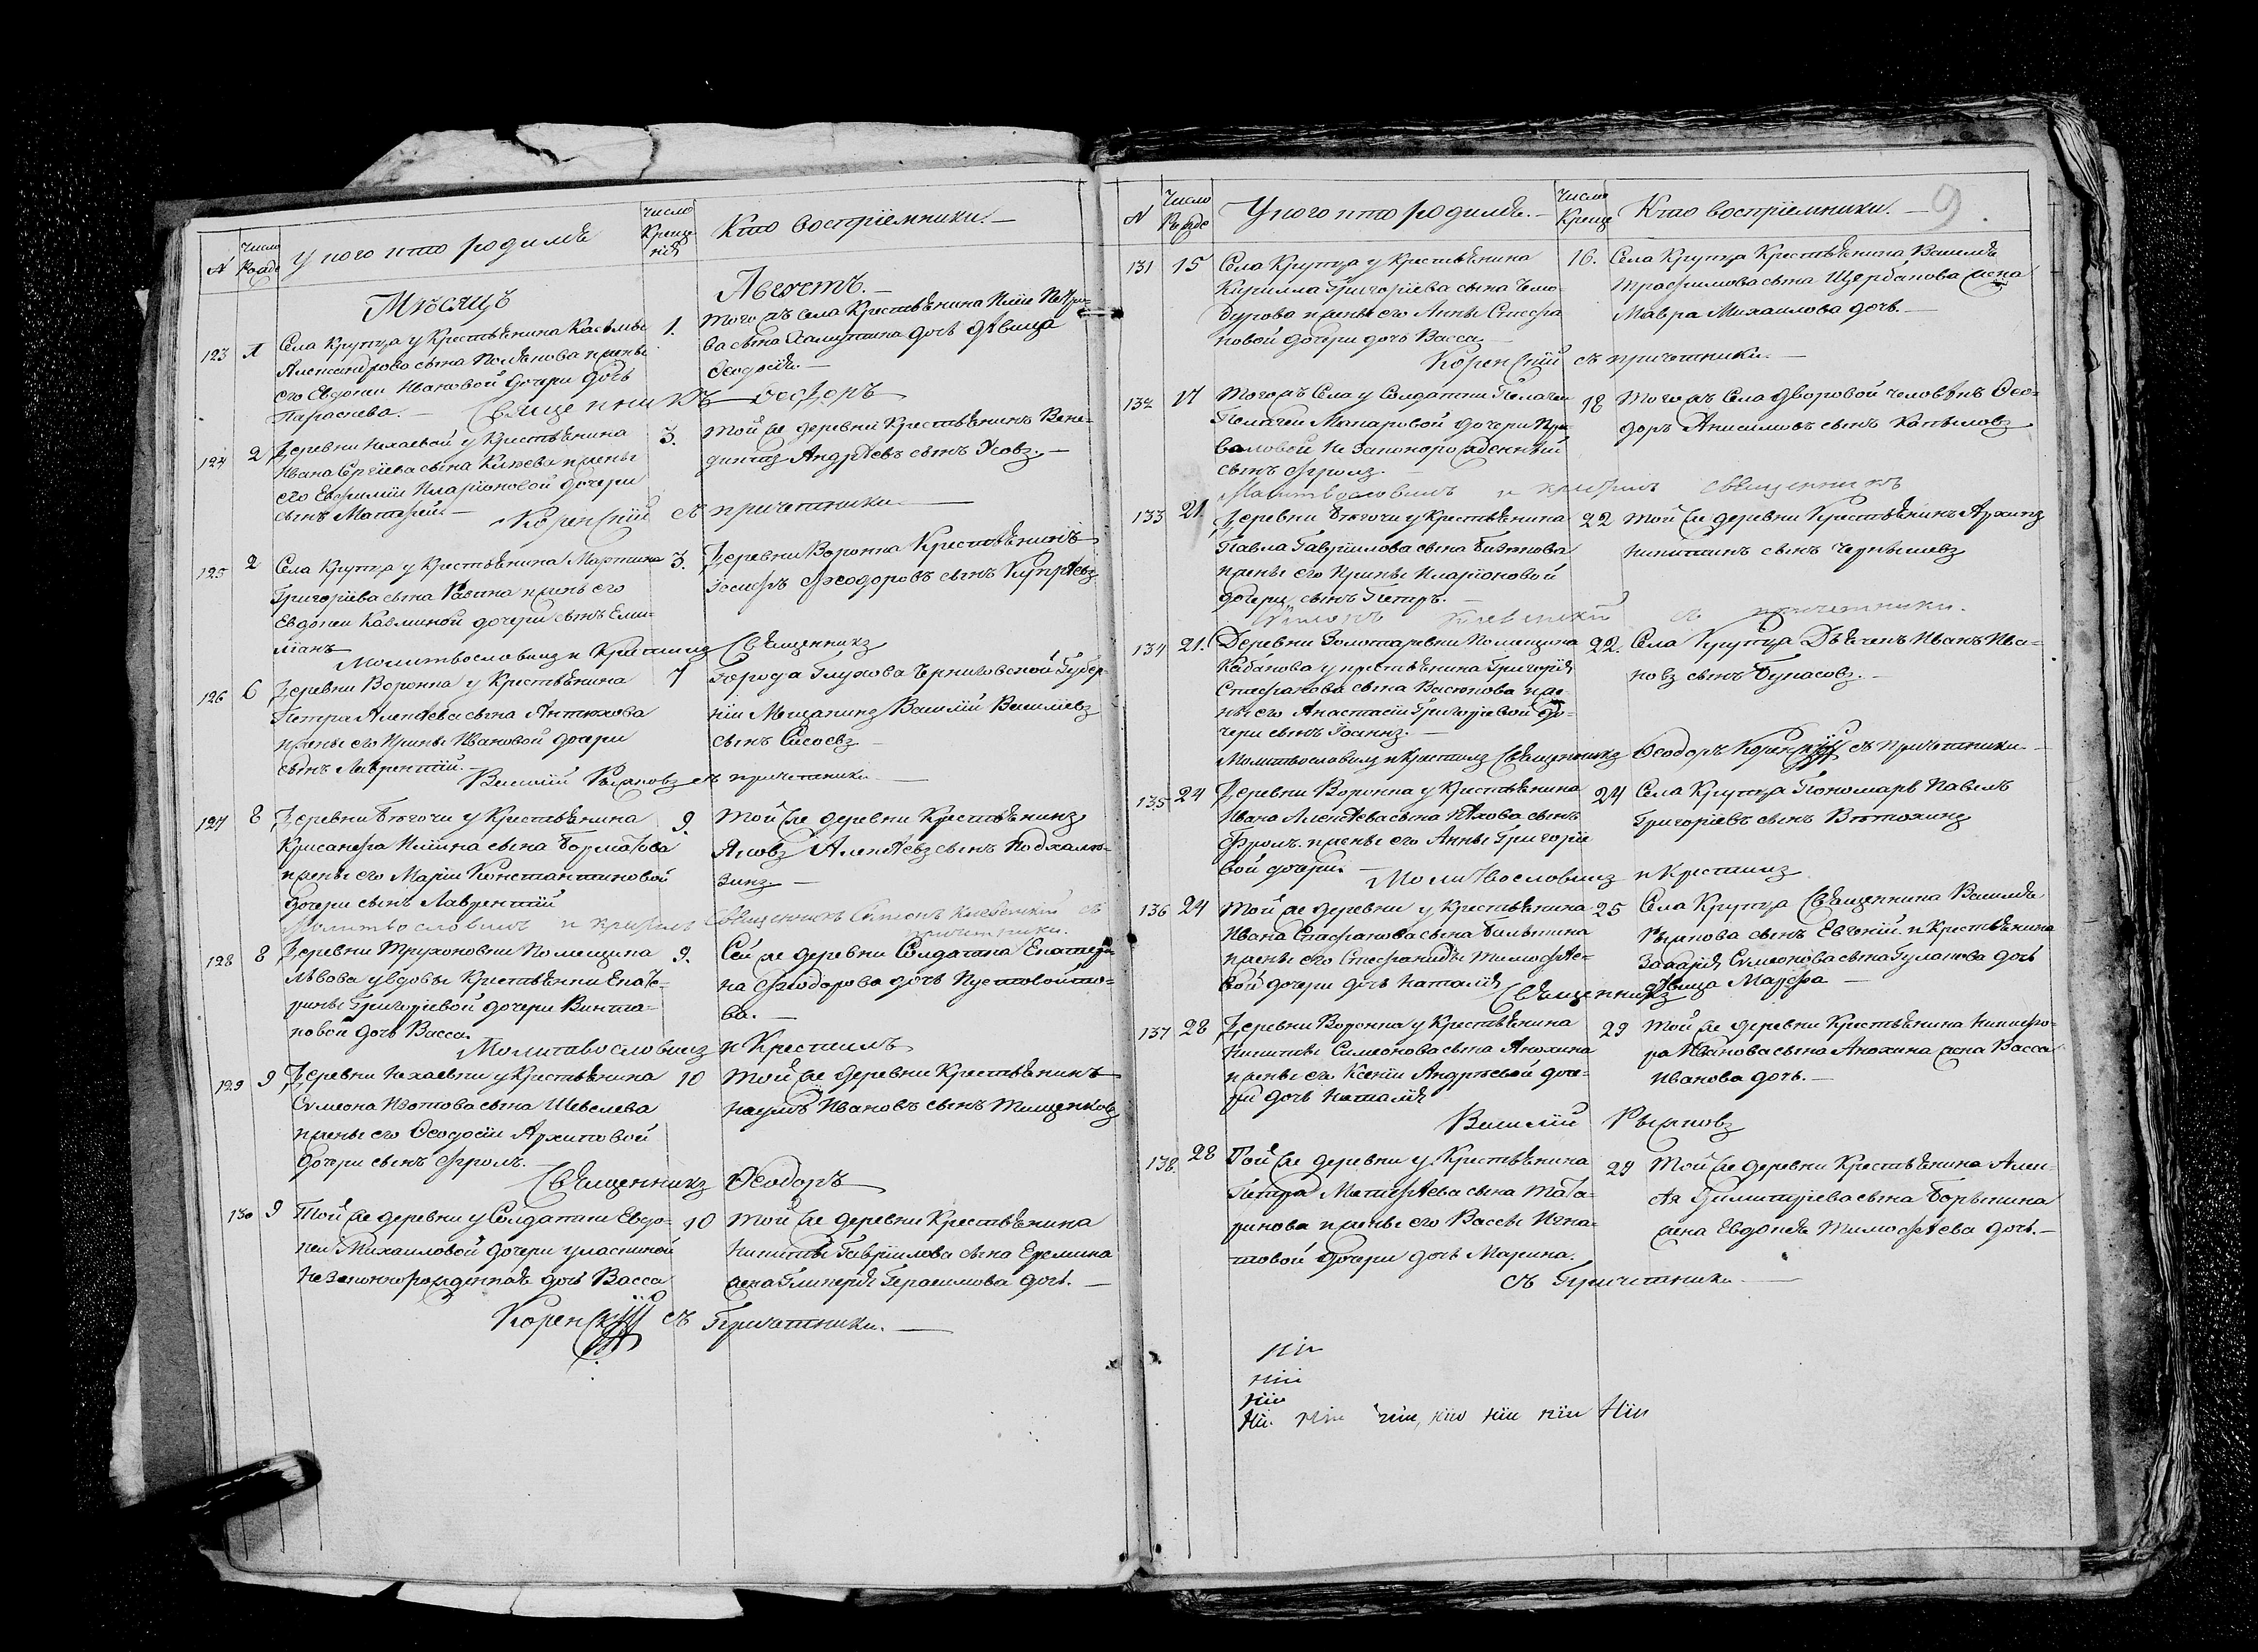 N
Число
Рожде
У кого кто родилъ
Число
Креще
нія
Кто воспріемники.
Мѣсяцъ
Августъ.
123
1
Села Крупца у Крестьянина Касьмы
Александрова сына Полѣнова и жены
его Евдокіи Ивановой дочери дочь
Параскева.
1.
того жъ села Крестьянина Иліи
сына дочь дѣвица
Феодосія.
Священникъ Феодоръ
124
2
Деревни Нехаевой у Крестьянина
Ивана Сергіева сына и жены
его Евфиміи Иларіоновой дочери
сынъ Матфей.
3.
той же деревни Крестьянинъ Вене-
диктъ Андрѣевъ сынъ Усовъ.
Коренскій съ причетники
125
2
Села Крупца у Крестьянина Мартина
Григоріева сына и жены его
Евдокіи Касминой дочери сынъ Еми-
ліанъ
3.
Деревни Воронка Крестьянинъ
Іосифъ Феодоровъ сынъ Купрѣевъ
Молитвословилъ и Крестилъ Священникъ
126
6
Деревни Воронка у Крестьянина
Петра Алексѣева сына Антюхова
и жены его Ирины Ивановой дочери
сынъ Лаврентій.
7
Города Глухова Черниговской Губер-
ніи Мещанинъ Василій Василіевъ
сынъ Сысоевъ
Василій Рыжковъ съ причетники
127
8
Деревни Бѣгочи у Крестьянина
Крисанфа Иліина сына
и жены его Маріи Константиновой
дочери сынъ Лаврентій
9.
Той же деревни Крестьянинъ
Яковъ Алексѣевъ сынъ Подхалю-
зинъ
Молитвословилъ и крестилъ священникъ Симеонъ Киевский съ
причетники.
128
8
Деревни Трухоновки Помещика
Львова у вдовы Крестьянки Екате-
рины Григорьевой дочери
новой дочь Васса.
9.
Сей же деревни Солдатка Екатери-
на Феодорова дочь Пустовойто-
ва.
Молитвословилъ и Крестилъ
129
9
Деревни Нехаевки у Крестьянина
Симеона Изотова сына Шевелева
и жены его Феодосіи Архиповой
дочери сынъ Фролъ.
10
Той же деревни Крестьянинъ
Наумъ Ивановъ сынъ Тищенковъ
Священникъ Феодоръ
130
9
Той же деревни у Солдатки Евдо-
кеи Михаиловой дочери
Незаконнорожденная дочь Васса
10
Той же деревни Крестьянина
Никиты Гавріилова сына Еремина
жена Гликерія Герасимова дочь.
Коренскій съ Причетники.
9.
N
Число
Рожде
У кого кто родилъ.
Число
Крещ
Кто воспріемники.
131
15
Села Крупца у Крестьянина
Кирилла Григоріева сына
дурова и жены его Анны Стефа
новой дочери дочь Васса
16.
Села Крупца Крестьянина Василія
Трофимова сына Щербакова жена
Мавра Михаилова дочь.
Коренскій съ причетники.
132
17
Тогожъ Села у Солдатки Пелагеи
Пелагеи Макаровой дочери
валовой Незаконорожденный
сынъ Фролъ.
18
Того жъ Села дворовой человѣкъ Фео-
доръ Анисимовъ сынъ Капыловъ
Молитвословилъ и крестилъ священникъ
133
21.
Деревни Бѣгочи у Крестьянина
Павла Гавріилова сына
и жены его Ирины Иларіоновой
дочери сынъ Петръ.
22
Той же деревни Крестьянинъ Архипъ
Никитинъ сынъ Чернышевъ
Симеонъ Киевский съ причетники.
134
21.
Деревни Золотаревки Помещика
Кабанова у крестьянина Григорія
Стефанова сына Васюкова и же-
ны его Анастасіи Григорьевой до-
чери сынъ Іоаннъ.
22.
Села Крупца Дьячекъ Иванъ Ива-
новъ сынъ Булгасовъ.
Молитвословилъ и Крестилъ Священникъ Феодоръ Коренскій съ причетники
135
24
Деревни Воронка у Крестьянина
Ивана Алексѣева сына сынъ
Фролъ. и жены его Анны Григоріе
вой дочери
24
Села Крупца Пономарь Павелъ
Григоріевъ сынъ
Молитвословилъ и Крестилъ
136
24
Той же деревни у Крестьянина
Ивана Стефанова сына
и жены его Стефаниды Тимофѣе-
вой дочери дочь Наталія
25
Села Крупца Священника Василія
Рыжкова сынъ Евгеній и Крестьянина
Захарія Симеонова сына Гулакова дочь
дѣвица Марфа
Священникъ
137
28
Деревни Воронка у Крестьянина
Никиты Симеонова сына Анохина
и жены его Ксеніи Андрѣевой доче-
ри дочь Наталія
29
Той же деревни Крестьянина Никифо-
ра Иванова сына Анохина жена Васса
Иванова дочь.
Василій Рыжковъ
138.
28
Той же деревни у Крестьянина
Петра Матфѣева сына Тата-
ринова и жены его Вассы Игна-
товой дочери дочь Марина.
29
Той же деревни Крестьянина Алек-
сѣя Димитріева сына Борыкина
жена Евдокія Тимофѣева дочь.
съ Причетники